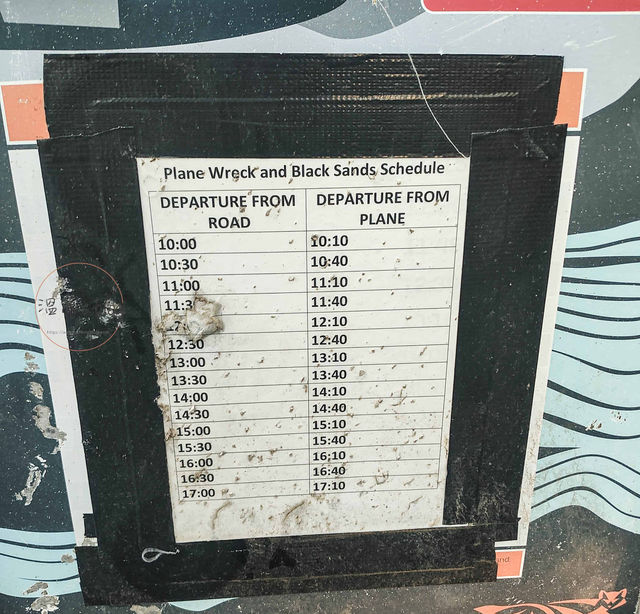 Plane Wreck and Black Sands Schedule
DEPARTURE FROM ROAD DEPARTURE FROM PLANE
10:00 10:10
10:30 10:40
11:00 11:10
11:3 11:40
12:10
12:30 12:40
13:00 13:10
13:30 13:40
14:00 14:10
14:30 14:40
15:00 15:10
15:30 15:40
16:00 16:10
16:30 16:40
17:00 17:10